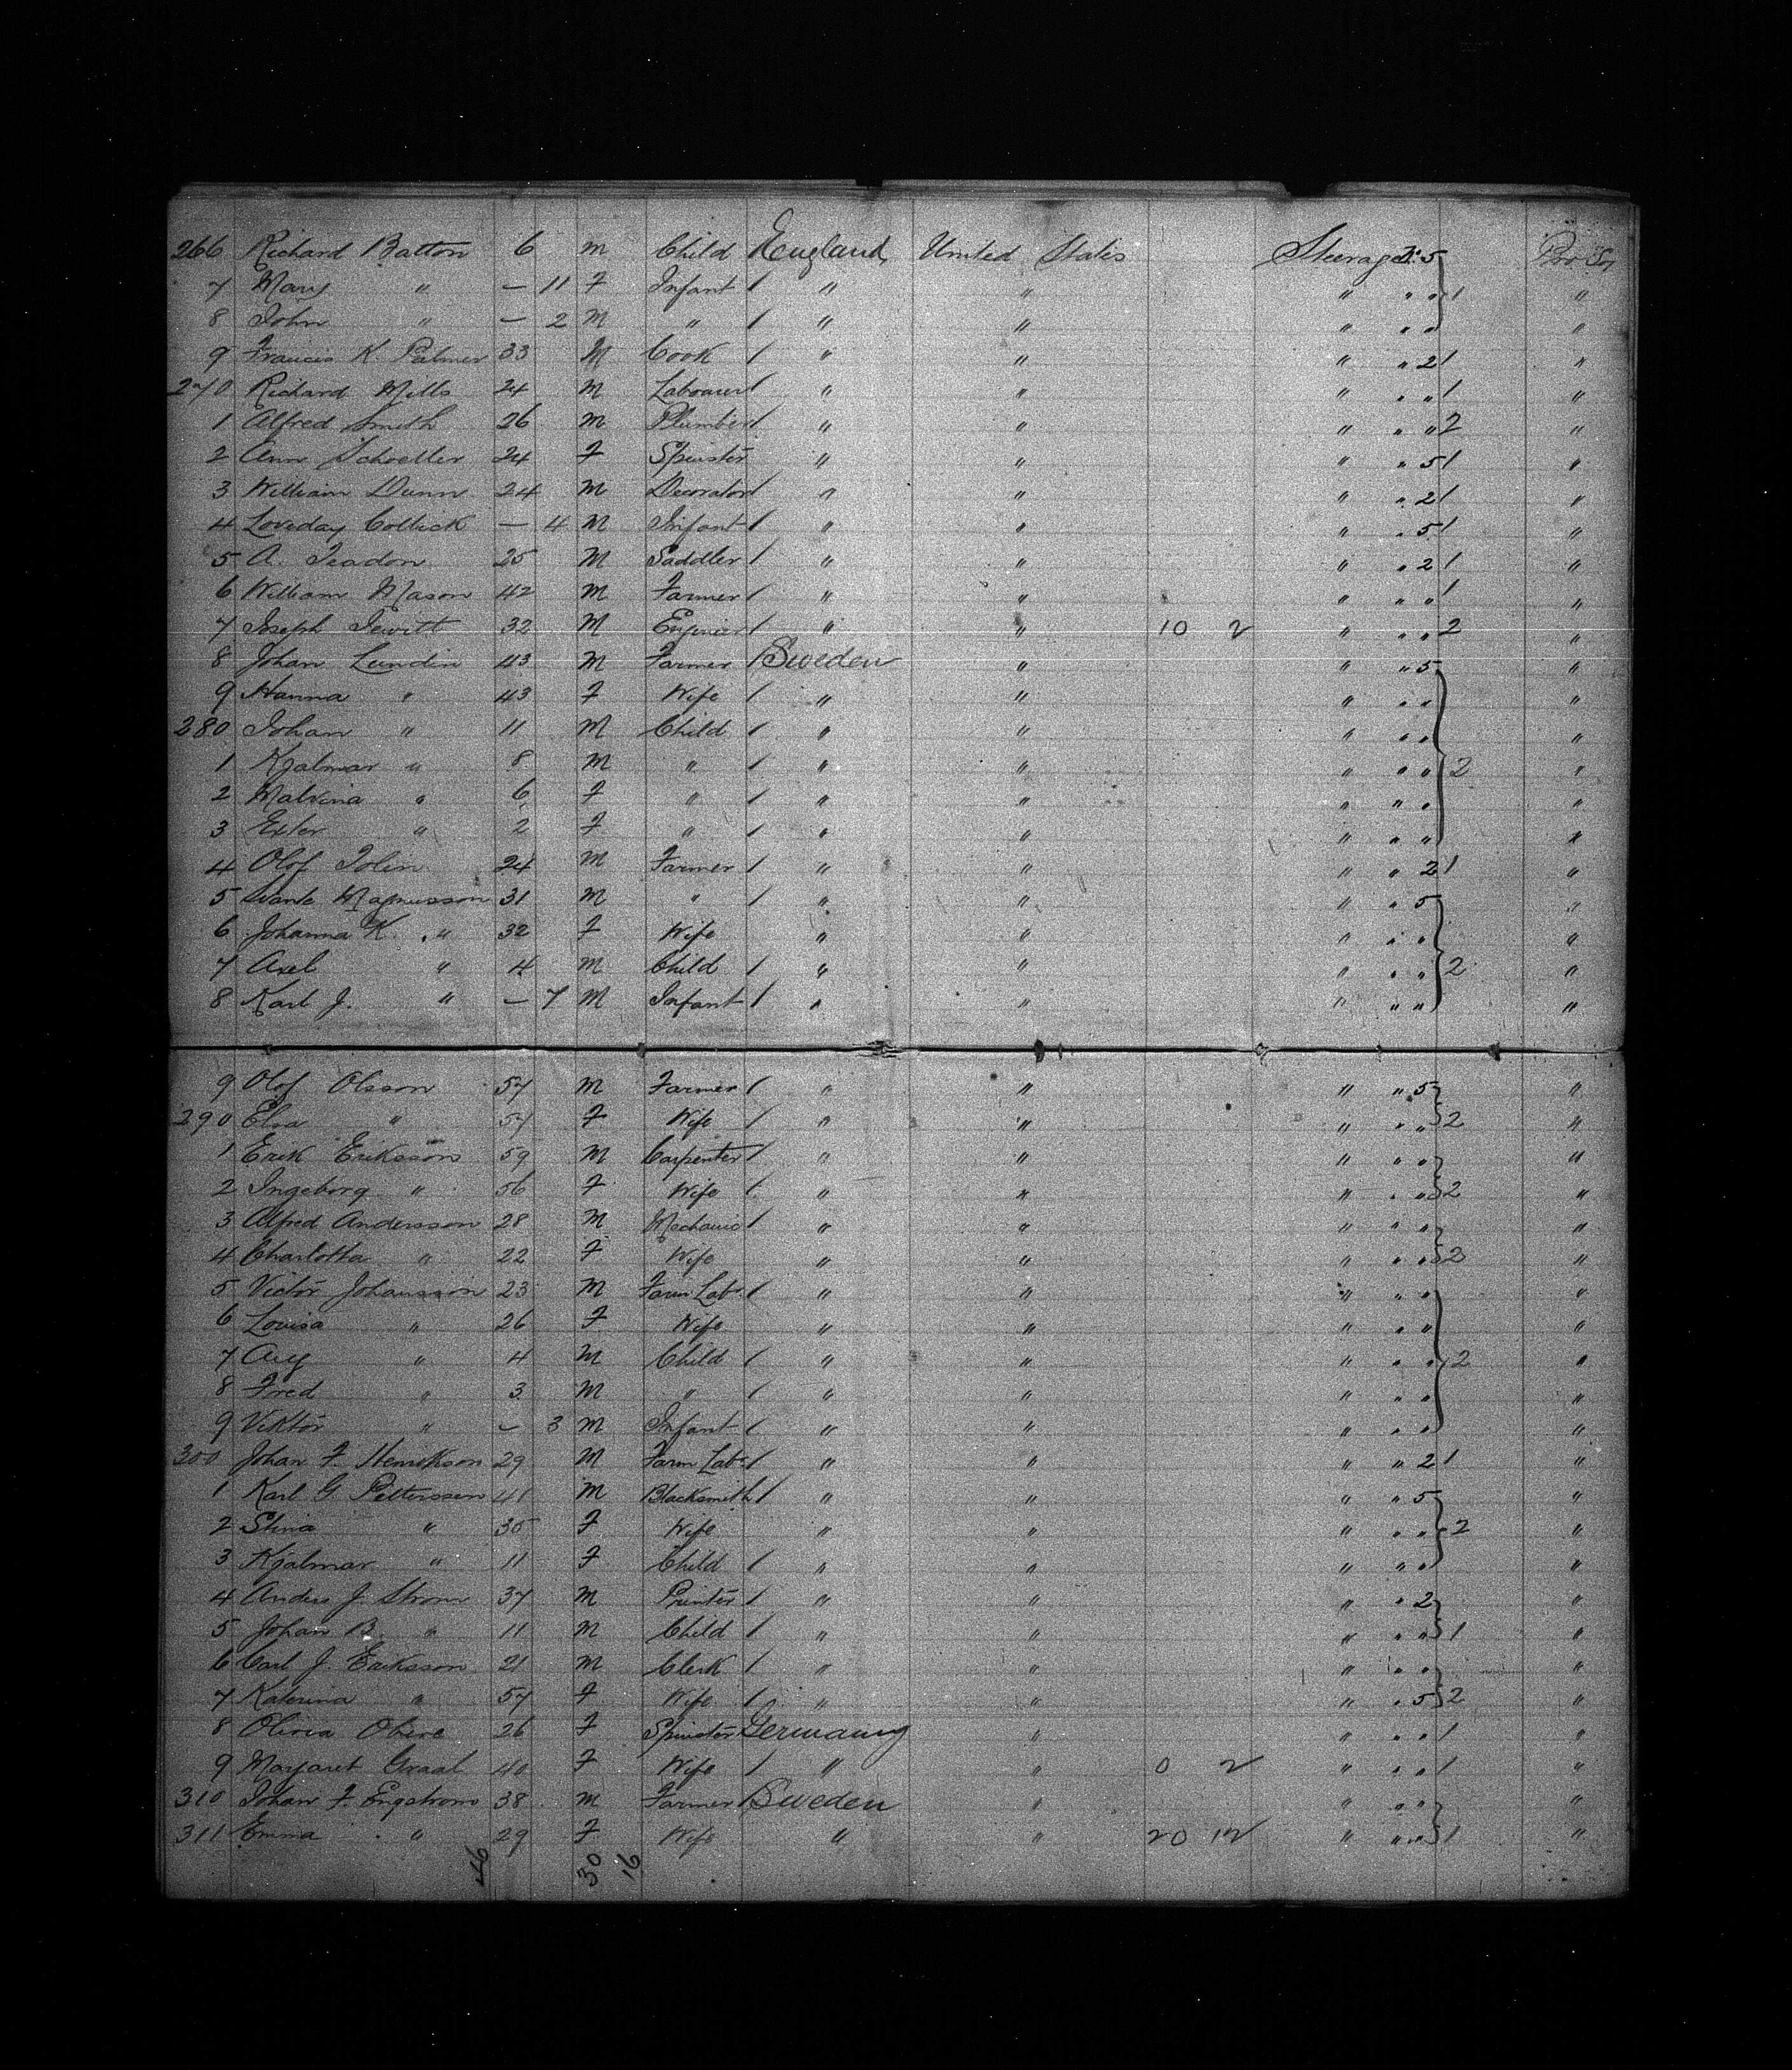 266 Richard Batton 6 M Child England United States Steerage No 5 Pro Ser
7 Mary " — 11 F Infant / " " " " " } 1 "
8 John " — 2 M " / " " " " " "
9 Francis K. Palmer 33 M Cook / " " " " 2 1 "
270 Richard Mills 24 M Labourer / " " " " " 1 "
1 Alfred Smith 26 M Plumber / " " " " " 2 "
2 Ann Schoeller 24 F Spinster " " " " 5 1 "
3 William Dunn 24 M Decorator / " " " " 2 1 "
4 Loveday Collick — 4 M Infant / " " " " 5 1 "
5 A. Teadon 25 M Saddler / " " " " 2 1 "
6 William Mason 42 M Farmer / " " " " " 1 "
7 Joseph Jewitt 32 M Engineer / " " 10 2 " " " 2 "
8 Johan Lundin 43 M Farmer / Sweden " " " 5 "
9 Hanna " 43 F Wife / " " " " " "
280 Johan " 11 M Child / " " " " " "
1 Hjalmar " 8 M " / " " " " " } 2 "
2 Malvina " 6 F " / " " " " " "
3 Ester " 2 F " / " " " " " "
4 Olof Tolin 24 M Farmer / " " " " 2 1 "
5 Svante Magnusson 31 M " / " " " " 5 "
6 Johanna K. " 32 F Wife " " " " " "
7 Axel " 4 M Child / " " " " " } 2 "
8 Karl J. " — 7 M Infant / " " " " " "
9 Olof Olsson 57 M Farmer / " " " " 5 "
290 Elva " 57 F Wife / " " " " " } 2 "
1 Erik Eriksson 59 M Carpenter / " " " " " "
2 Ingeborg " 56 F Wife / " " " " " } 2 "
3 Alfred Andersson 28 M Mechanic / " " " " " "
4 Charlotta " 22 F Wife " " " " " } 2 "
5 Victor Johansson 23 M Farm Labr / " " " " " "
6 Louisa " 26 F Wife " " " " " "
7 Aug " 4 M Child / " " " " " } 2 "
8 Fred " 3 M " / " " " " " "
9 Viktor " — 3 M Infant / " " " " " "
300 Johan F. Henrikson 29 M Farm Labr / " " " " 2 1 "
1 Karl G Pettersson 41 M Blacksmith / " " " " 5 "
2 Stina " 35 F Wife " " " " " } 2 "
3 Hjalmar " 11 F Child / " " " " " "
4 Anders J. Strom 37 M Printer / " " " " 2 "
5 Johan B. " 11 M Child / " " " " " } 1 "
6 Carl J. Eriksson 21 M Clerk / " " " " " "
7 Katerina " 57 F Wife / " " " " 5 } 2 "
8 Olivia 26 F Spinster Germany " " " " 1 "
9 Margaret Graal 40 F Wife / " " 0 2 " " " 1 "
310 Johan F. Engstrom 38 M Farmer / Sweden " " " " "
311 Emma " 29 F Wife " " 20 12 " " " } 1 "
46 30 16